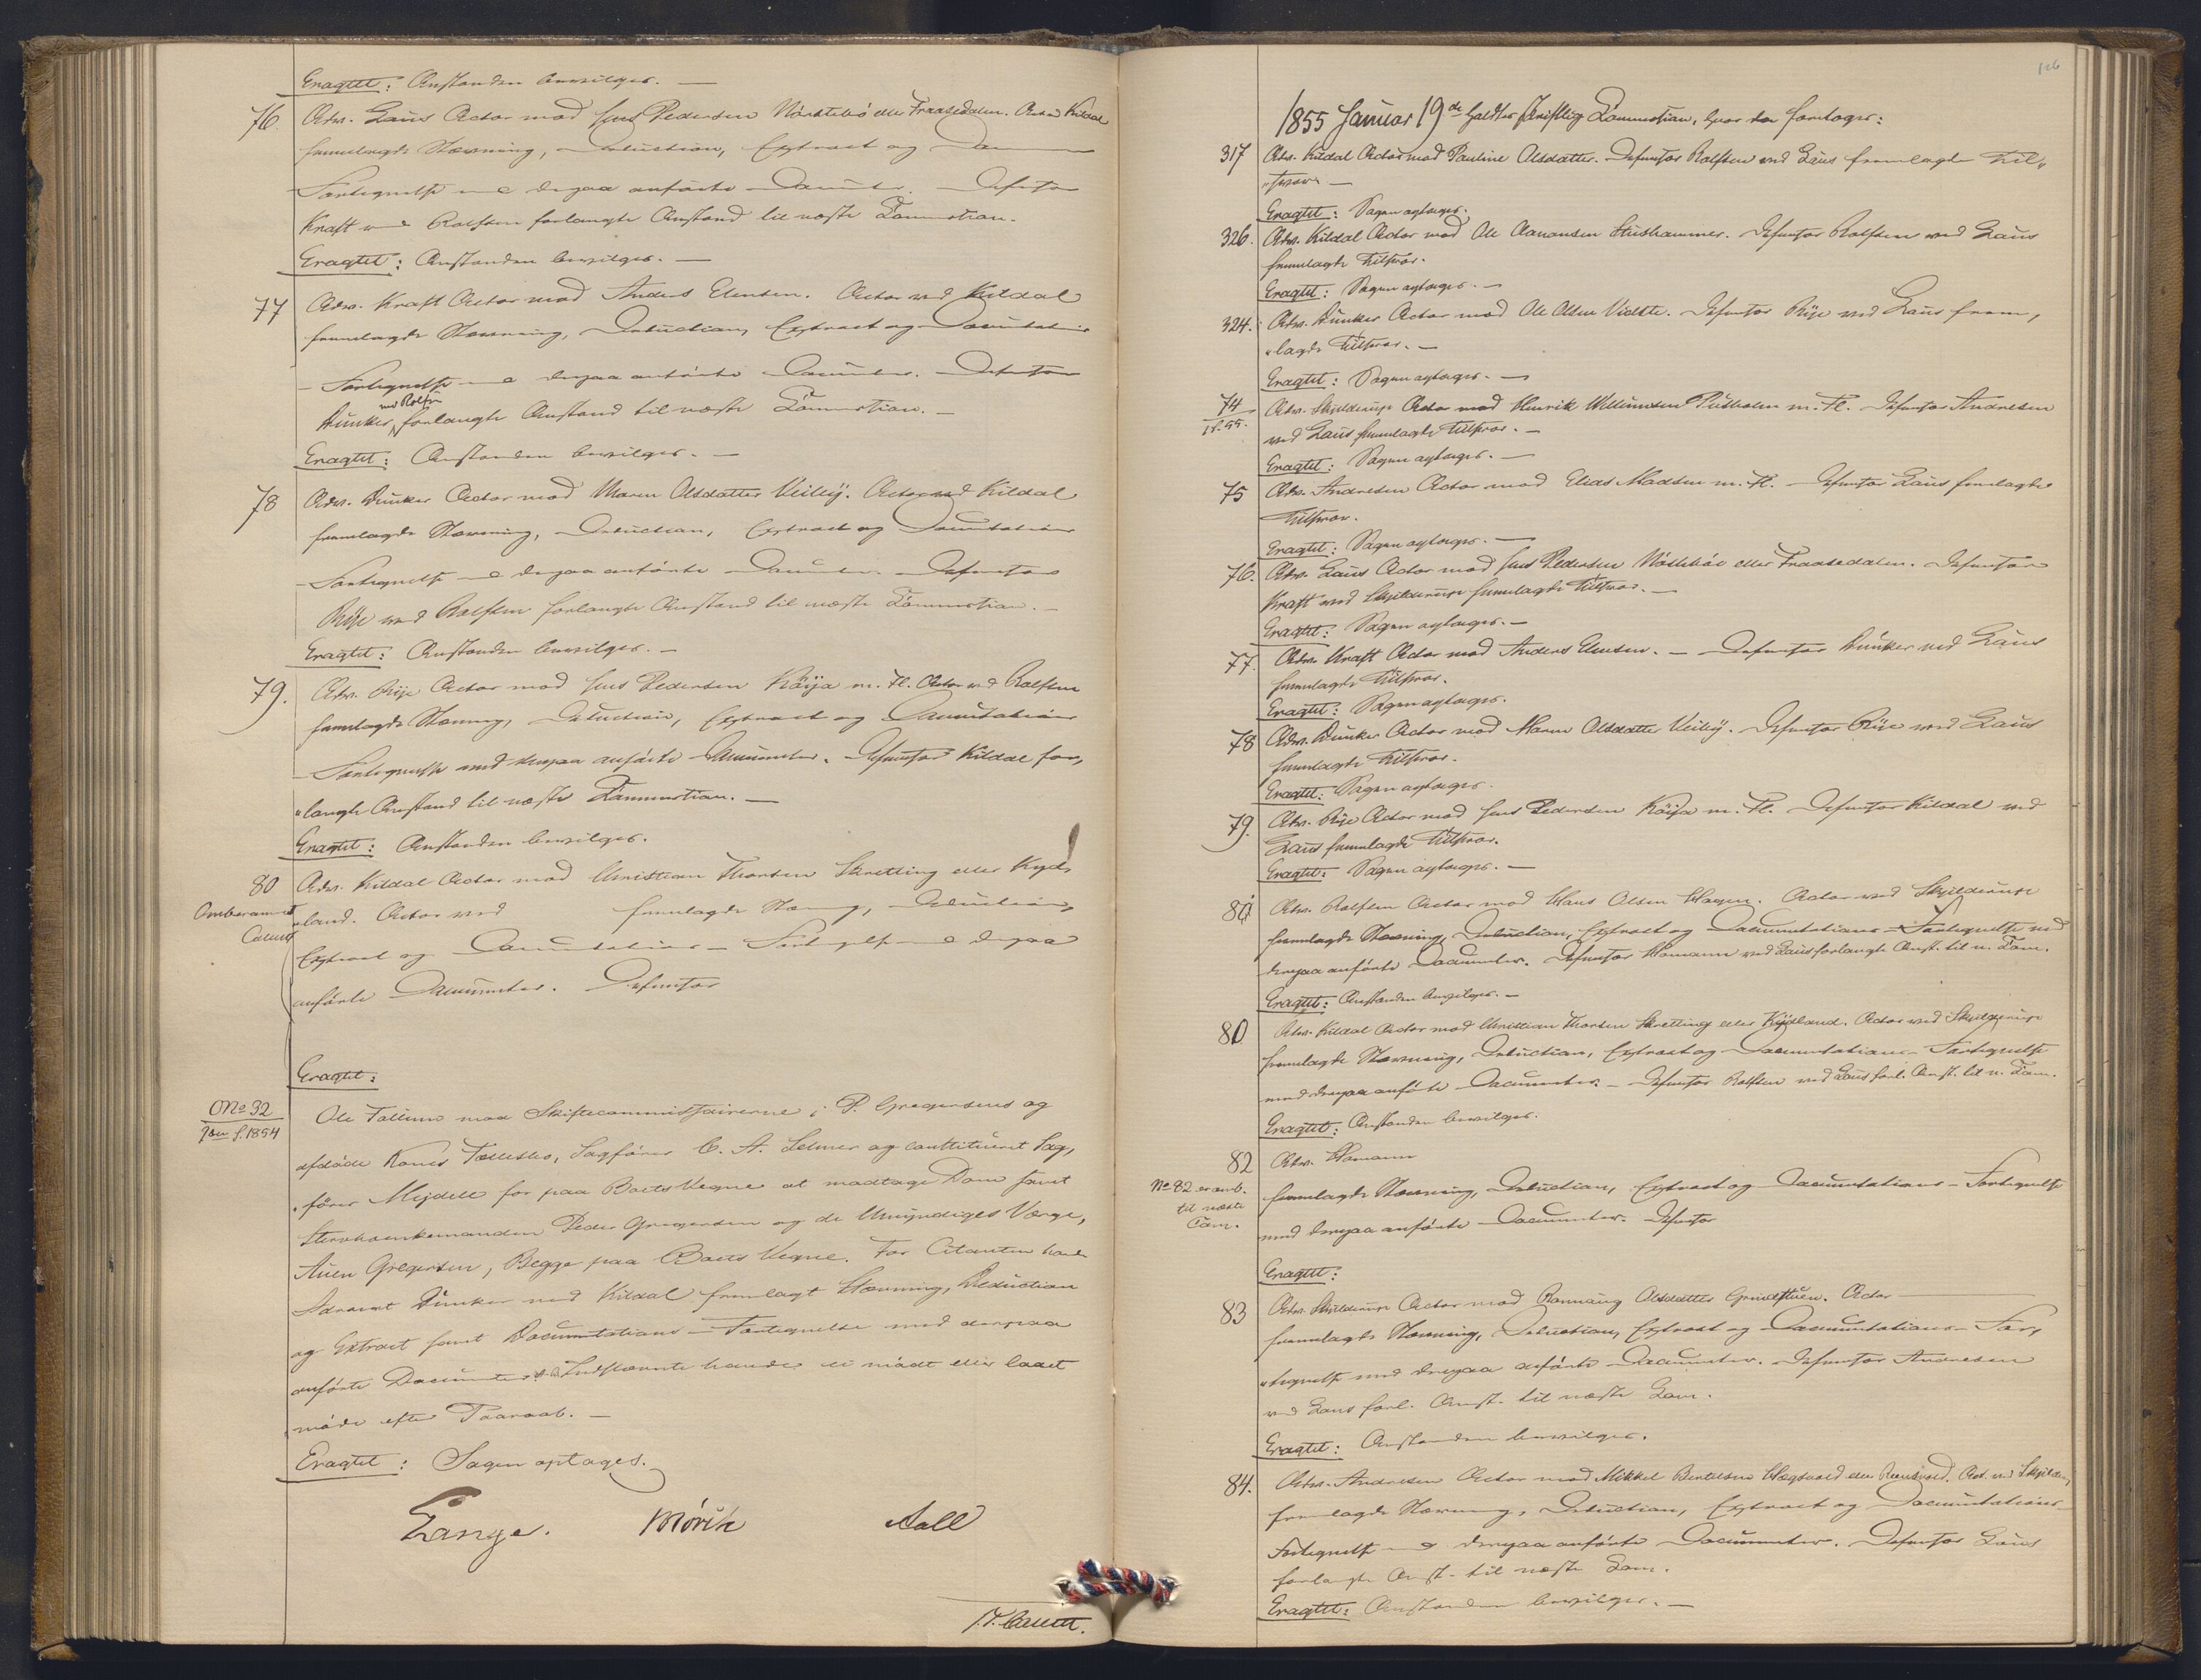 Eragtet: Anstanden bevilges. —
76. Adv. Laus Actor mod Jens Pedersen Nöstebö eller Fraasedalen. Actor Kildal
fremlagde Stævning, Deduction, Extract og
Fortegnelse med derpaa anförte Documenter. Defensor
Kraft ved Rolfsen forlangte Anstand til næste Commission.
Eragtet: Anstanden bevilges. —
77 Adv. Kraft Actor mod Anders Elensen. Actor ved Kildal
fremlagde Stævning, Deduction, Extract og Documentations
Fortegnelse med derpaa anförte Documenter. Defensor
ved Rolfsen
Dunker forlangte Anstand til næste Commission. —
Eragtet: Anstanden bevilges. —
78 Adv. Dunker Actor mod Maren Olsdatter Veiby. Actor ved Kildal
fremlagde Stævning, Deduction, Extract og Documentations
Fortegnelse med derpaa anförte Documenter. Defensor
Rije ved Rolfsen forlangte Anstand til næste Commission. —
Eragtet: Anstanden bevilges. —
79. Adv. Rije Actor mod Jens Pedersen Köija m. Fl. Actor ved Rolfsen
fremlagde Stævning, Deduction, Extract og Documentations
Fortegnelse med derpaa anförte Documenter. Defensor Kildal for,
"langte Anstand til næste Commission. —
Eragtet: Anstanden bevilges.
80 Adv. Kildal Actor mod Christian Thorsen Skretting eller Kyd,
Omberammet
"land. Actor ved fremlagde Stævning, Deduction,
Extract og Documentations – Fortegnelse med derpaa
anförte Documenter. Defensor
Eragtet:
No 32
1854
Ole Tallum mod Skiftecommissairerne i P. Gregersens og
afdöde Kones Fællesbo, Sagförer C. A. Selmer og constitueret Sag,
"förer Mejdell for paa Boets Vegne at modtage Dom samt
Stervboenkemanden Peder Gregersen og de Umyndiges Værge,
Auen Gregersen, Begge paa Boets Vegne. For Citanten havde
Advocat Dunker ved Kildal fremlagt Stævning, Deduction
og Extract samt Documentations – Fortegnelse med derpaa
anförte Documenter. Indstævnte havde ei mödt eller ladet
möde efter Paaraab. —
Eragtet: Sagen optages.
Lange. Mörch Aall
1855 Januar 19de holdtes skriftlig Commission, hvor da foretoges:
317 Adv. Kildal Actor mod Pauline Olsdatter. Defensor Rolfsen ved Laus fremlagde Til,
"svar —
Eragtet: Sagen optages.
326. Adv. Kildal Actor mod Ole Aanonsen Stushammer. Defensor Rolfsen ved Laus
fremlagde Tilsvar.
Eragtet: Sagen optages. —
324. Adv. Dunker Actor mod Ole Olsen Vidste. Defensor Rije ved Laus frem,
"lagde Tilsvar. —
Eragtet: Sagen optages. —
74
1855. Adv. Skjelderup Actor mod Henrik Willumsen Putholen m. Fl. Defensor Andresen
ved Laus fremlagde Tilsvar. —
Eragtet: Sagen optages. —
75 Adv. Andresen Actor mod Elias Madsen m. Fl. – Defensor Laus fremlagde
Tilsvar.
Eragtet: Sagen optages. —
76. Adv. Laus Actor mod Jens Pedersen Nöstebö eller Fraasedalen. Defensor
Kraft ved Skjelderup fremlagde Tilsvar. —
Eragtet: Sagen optages. —
77. Adv. Kraft Actor mod Anders Elensen. – Defensor Dunker ved Laus
fremlagde Tilsvar.
Eragtet: Sagen optages.
78 Adv. Dunker Actor mod Maren Olsdatter Veiby. Defensor Rije ved Laus
fremlagde Tilsvar.
Eragtet: Sagen optages.
79. Adv. Rije Actor mod Jens Pedersen Köija m. Fl. Defensor Kildal ved
Laus fremlagde Tilsvar.
Eragtet: Sagen optages. —
Adv. Rolfsen Actor mod Hans Olsen Hagen. Actor ved Skjelderup
fremlagde Stævning, Deduction, Extract og Documentations – Fortegnelse med
derpaa anförte Documenter. Defensor Homann ved Laus forlangte Anst. til n. Com.
Eragtet: Anstanden bevilges. —
80 Adv. Kildal Actor mod Christian Thorsen Skretting eller Kydland. Actor ved Skjelderup
fremlagde Stævning, Deduction, Extract og Documentations – Fortegnelse
med derpaa anförte Documenter. – Defensor Rolfsen ved Laus forl. Anst. til n. Com.
Eragtet: Anstanden bevilges.
82 Adv. Homann
No 82 er omb.
til næste
Com.
fremlagde Stævning, Deduction, Extract og Documentations – Fortegnelse
med derpaa anförte Documenter. Defensor
Eragtet:
83 Adv. Skjelderup Actor mod Rannaug Olsdatter Grindstuen. Actor —
fremlagde Stævning, Deduction, Extract og Documentations – For,
"tegnelse med derpaa anförte Documenter. Defensor Andresen
ved Laus forl. Anst. til næste Com.
Eragtet: Anstanden bevilges.
84. Adv. Andresen Actor mod Mikkel Bentsen Hægvold eller Act. ved Skjelder,
fremlagde Stævning, Deduction, Extract og Documentations
Fortegnelse med derpaa anförte Documenter. Defensor Laus
forlangte Anst. til næste Com.
Eragtet: Anstanden bevilges. —